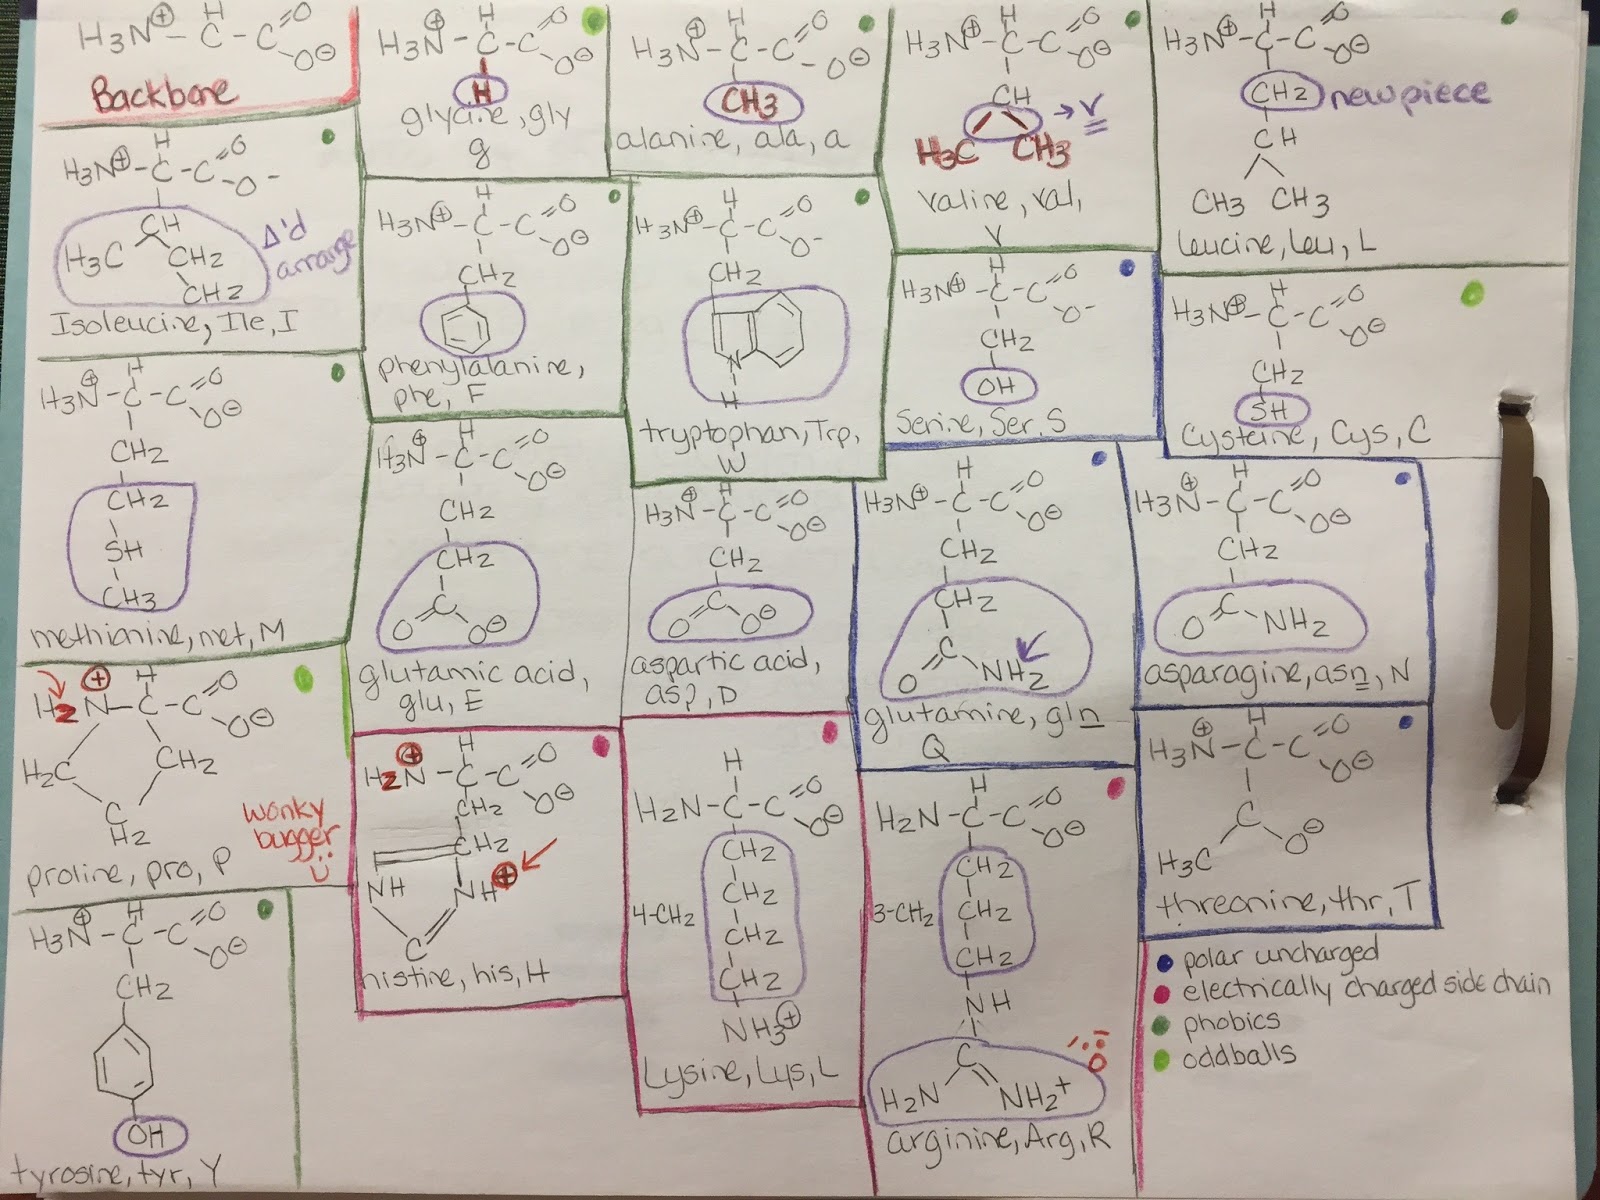 H3N⊕ - C - C = O
H
O⊖
Backbone
H3N⊕ - C - C = O
H
O⊖
H
glycine, gly
g
H3N⊕ - C - C = O
H
O⊖
CH3
alanine, ala, a
H3N⊕ - C - C = O
H
O⊖
CH → V
H3C CH3
valine, val,
V
H3N⊕ - C - C = O
H
O⊖
CH2 new piece
CH
CH3 CH3
leucine, leu, L
H3N⊕ - C - C = O
H
O-
CH
H3C CH2
CH2
Δ'd
arrange
Isoleucine, Ile, I
H3N⊕ - C - C = O
H
O⊖
CH2
phenylalanine,
phe, F
H3N⊕ - C - C = O
H
O-
CH2
N
H
tryptophan, Trp,
W
H3N⊕ - C - C = O
H
O-
CH2
OH
Serine, Ser, S
H3N⊕ - C - C = O
H
O⊖
CH2
SH
Cysteine, Cys, C
H3N⊕ - C - C = O
H
O⊖
CH2
CH2
SH
CH3
methionine, met, M
H3N⊕ - C - C = O
H
O⊖
CH2
CH2
C
O O⊖
glutamic acid,
glu, E
H3N⊕ - C - C = O
H
O⊖
CH2
C
O O⊖
aspartic acid,
asp, D
H3N⊕ - C - C = O
H
O⊖
CH2
CH2
C
O NH2
glutamine, gln
Q
H3N⊕ - C - C = O
H
O⊖
CH2
C
O NH2
asparagine, asn, N
H2N⊕ - C - C = O
H
O⊖
H2C CH2
C
H2
wonky
bugger
proline, pro, P
H2N⊕ - C - C = O
H
O⊖
CH2
CH2
NH NH⊕
C
histine, his, H
H
H2N - C - C = O
O⊖
CH2
CH2
4-CH2
CH2
CH2
NH3⊕
Lysine, Lys, L
H
H2N - C - C = O
O⊖
CH2
3-CH2 CH2
CH2
NH
C
H2N NH2+
arginine, Arg, R
H3N⊕ - C - C = O
H
O⊖
C
H3C O⊖
threonine, thr, T
H3N⊕ - C - C = O
H
O⊖
CH2
OH
tyrosine, tyr, Y
polar uncharged
electrically charged side chain
phobics
oddballs